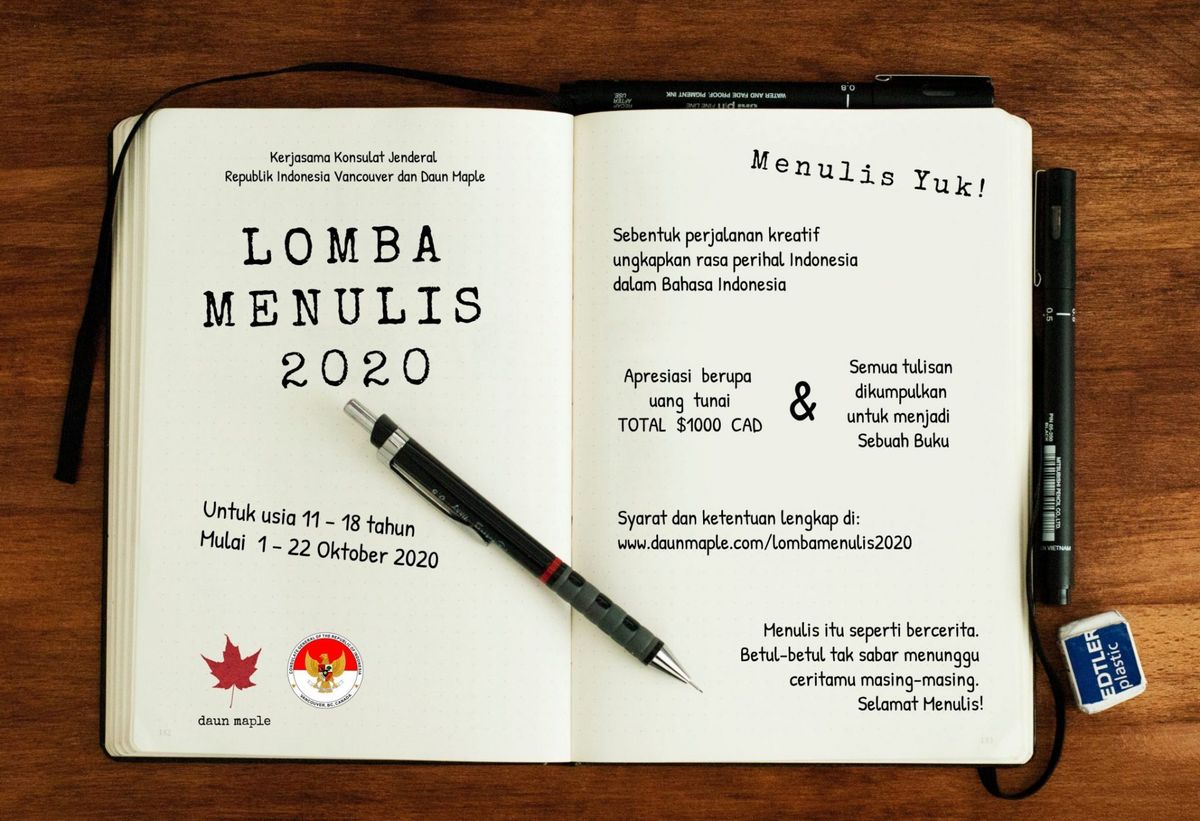 Kerjasama Konsulat Jenderal
Republik Indonesia Vancouver dan Daun Maple
LOMBA
MENULIS
2020
Untuk usia 11 - 18 tahun
Mulai 1 - 22 Oktober 2020
daun maple
CONSULATE GENERAL OF THE REPUBLIC OF INDONESIA
VANCOUVER, BC, CANADA
Menulis Yuk!
Sebentuk perjalanan kreatif
ungkapkan rasa perihal Indonesia
dalam Bahasa Indonesia
Apresiasi berupa
uang tunai
TOTAL $1000 CAD
&
Semua tulisan
dikumpulkan
untuk menjadi
Sebuah Buku
Syarat dan ketentuan lengkap di:
www.daunmaple.com/lombamenulis2020
Menulis itu seperti bercerita.
Betul-betul tak sabar menunggu
ceritamu masing-masing.
Selamat Menulis!
WATER AND FADE PROOF, PIGMENT INK
pin FINE LINE
RECAP
AFTER
USE
0.8
0.5
PIN 05-200
BLACK
MITSUBISHI PENCIL CO., LTD
IN VIETNAM
EDTLER
plastic